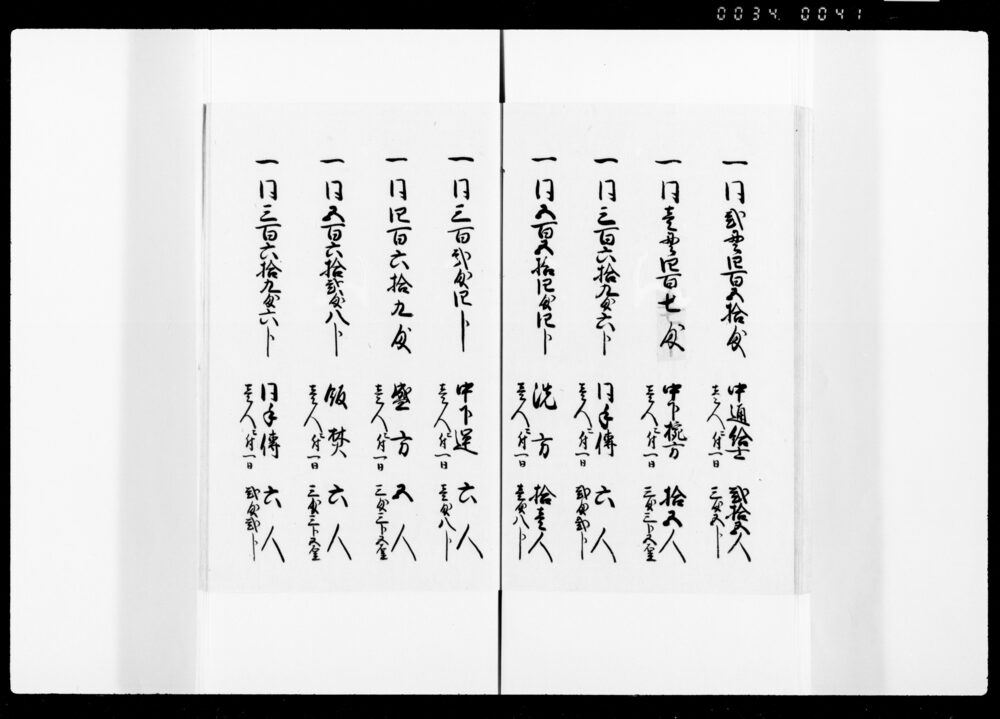 0034.0041
一同弐貫四百五拾匁 中通給士 弐拾五人
壱人ニ付一日 三匁五分
一同壱貫四百七匁 中下椀方 拾五人
壱人ニ付一日 三匁三分五厘
一同三百六拾九匁六分 同手傳 六人
壱人ニ付一日 弐匁弐分
一同五百五拾四匁四分 洗方 拾壱人
壱人ニ付一日 壱匁八分
一同三百弐匁四分 中下運 六人
壱人ニ付一日 壱匁八分
一同四百六拾九匁 盛方 五人
壱人ニ付一日 三匁三分五厘
一同五百六拾弐匁八分 飯焚 六人
壱人ニ付一日 三匁三分五厘
一同三百六拾九匁六分 同手傳 六人
壱人ニ付一日 弐匁弐分